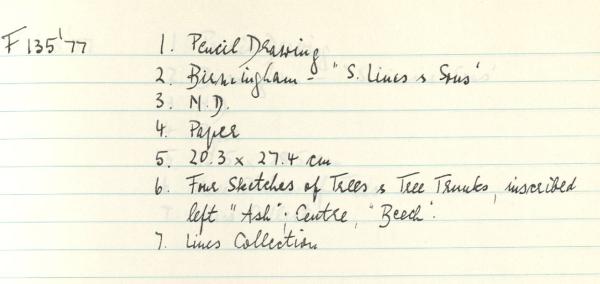 F 135'77 1. Pencil Drawing
2. Birmingham - "S. Lines & Sons"
3. N.D.
4. Paper
5. 20.3 x 27.4 cm
6. Four Sketches of Trees & Tree Trunks, inscribed
left "Ash"; Centre, "Beech".
7. Lines Collection